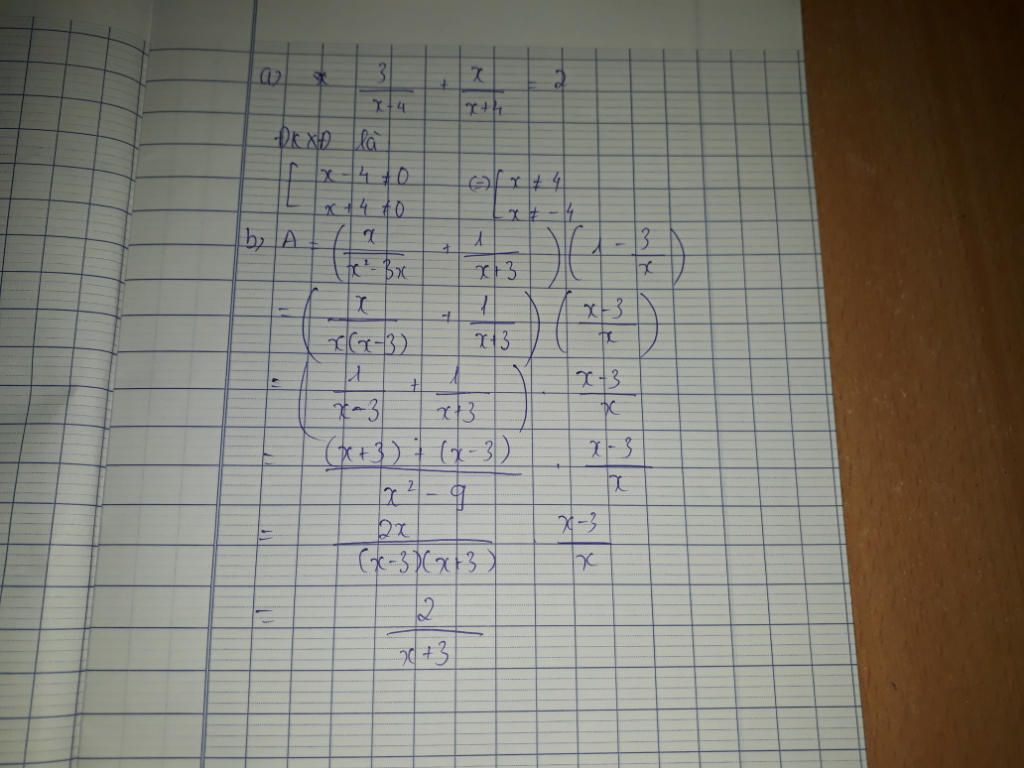 a) x 3/(x-4) + x/(x+4) = 2
ĐKXĐ là
[ x-4 ≠ 0 (=) [ x ≠ 4
x+4 ≠ 0 x ≠ -4
b) A = ( x/(x²-3x) + 1/(x+3) ) ( 1 - 3/x )
= ( x/(x(x-3)) + 1/(x+3) ) ( (x-3)/x )
= ( 1/(x-3) + 1/(x+3) ) . (x-3)/x
= ((x+3) + (x-3))/(x²-9) . (x-3)/x
= 2x/((x-3)(x+3)) . (x-3)/x
= 2/(x+3)